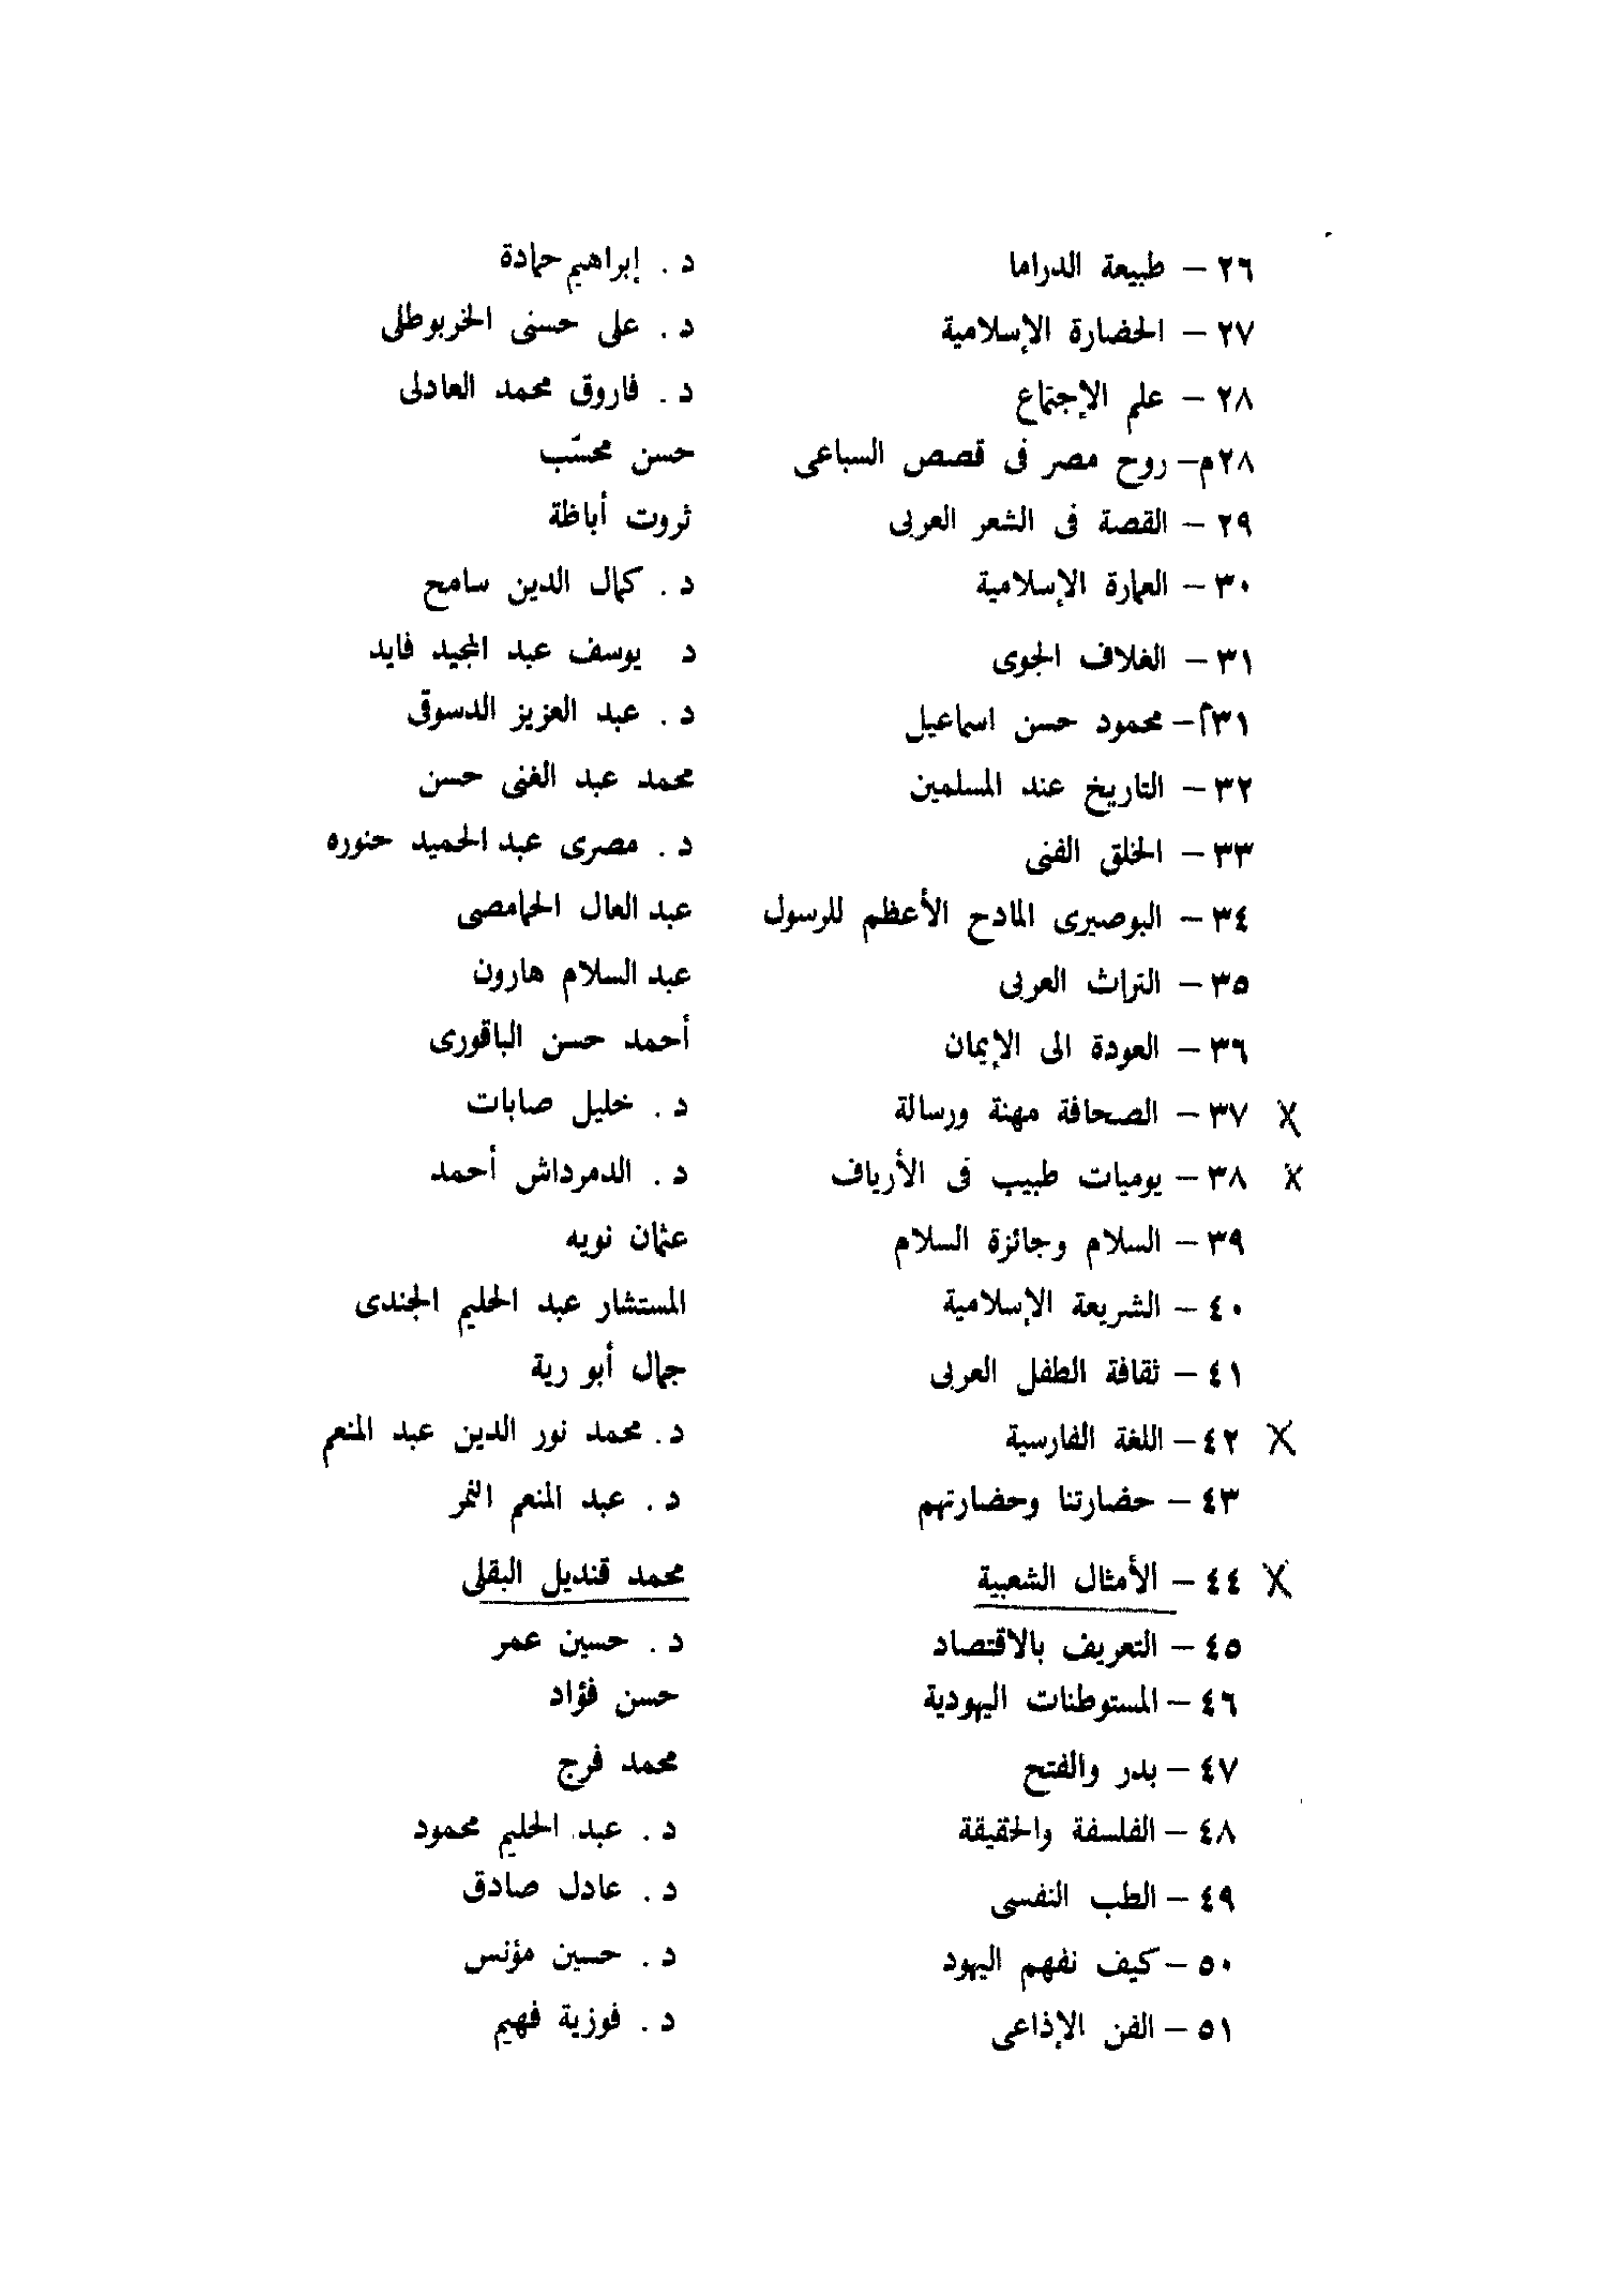 ٢٦ – طبيعة الدراما د . إبراهيم حمادة
٢٧ – الحضارة الإسلامية د . على حسنى الخربوطلى
٢٨ – علم الإجتماع د . فاروق محمد العادلى
٢٨م– روح مصر فى قصص السباعى حسن محسّب
٢٩ – القصة فى الشعر العربى ثروت أباظة
٣٠ – العمارة الإسلامية د . كمال الدين سامح
٣١ – الغلاف الجوى د يوسف عبد المجيد فايد
٣١م– محمود حسن اسماعيل د . عبد العزيز الدسوقى
٣٢ – التاريخ عند المسلمين محمد عبد الغنى حسن
٣٣ – الخلق الفنى د . مصرى عبد الحميد حنوره
٣٤ – البوصيرى المادح الأعظم للرسول عبد العال الحمامصى
٣٥ – التراث العربى عبد السلام هارون
٣٦ – العودة الى الإيمان أحمد حسن الباقورى
X ٣٧ – الصحافة مهنة ورسالة د . خليل صابات
X ٣٨ – يوميات طبيب فى الأرياف د . الدمرداش أحمد
٣٩ – السلام وجائزة السلام عثمان نويه
٤٠ – الشريعة الإسلامية المستشار عبد الحليم الجندى
٤١ – ثقافة الطفل العربى جمال أبو رية
X ٤٢ – اللغة الفارسية د . محمد نور الدين عبد المنعم
٤٣ – حضارتنا وحضارتهم د . عبد المنعم النمر
X ٤٤ – الأمثال الشعبية محمد قنديل البقلى
٤٥ – التعريف بالاقتصاد د . حسين عمر
٤٦ – المستوطنات اليهودية حسن فؤاد
٤٧ – بدر والفتح محمد فرج
٤٨ – الفلسفة والحقيقة د . عبد الحليم محمود
٤٩ – الطب النفسى د . عادل صادق
٥٠ – كيف نفهم اليهود د . حسين مؤنس
٥١ – الفن الإذاعى د . فوزية فهيم